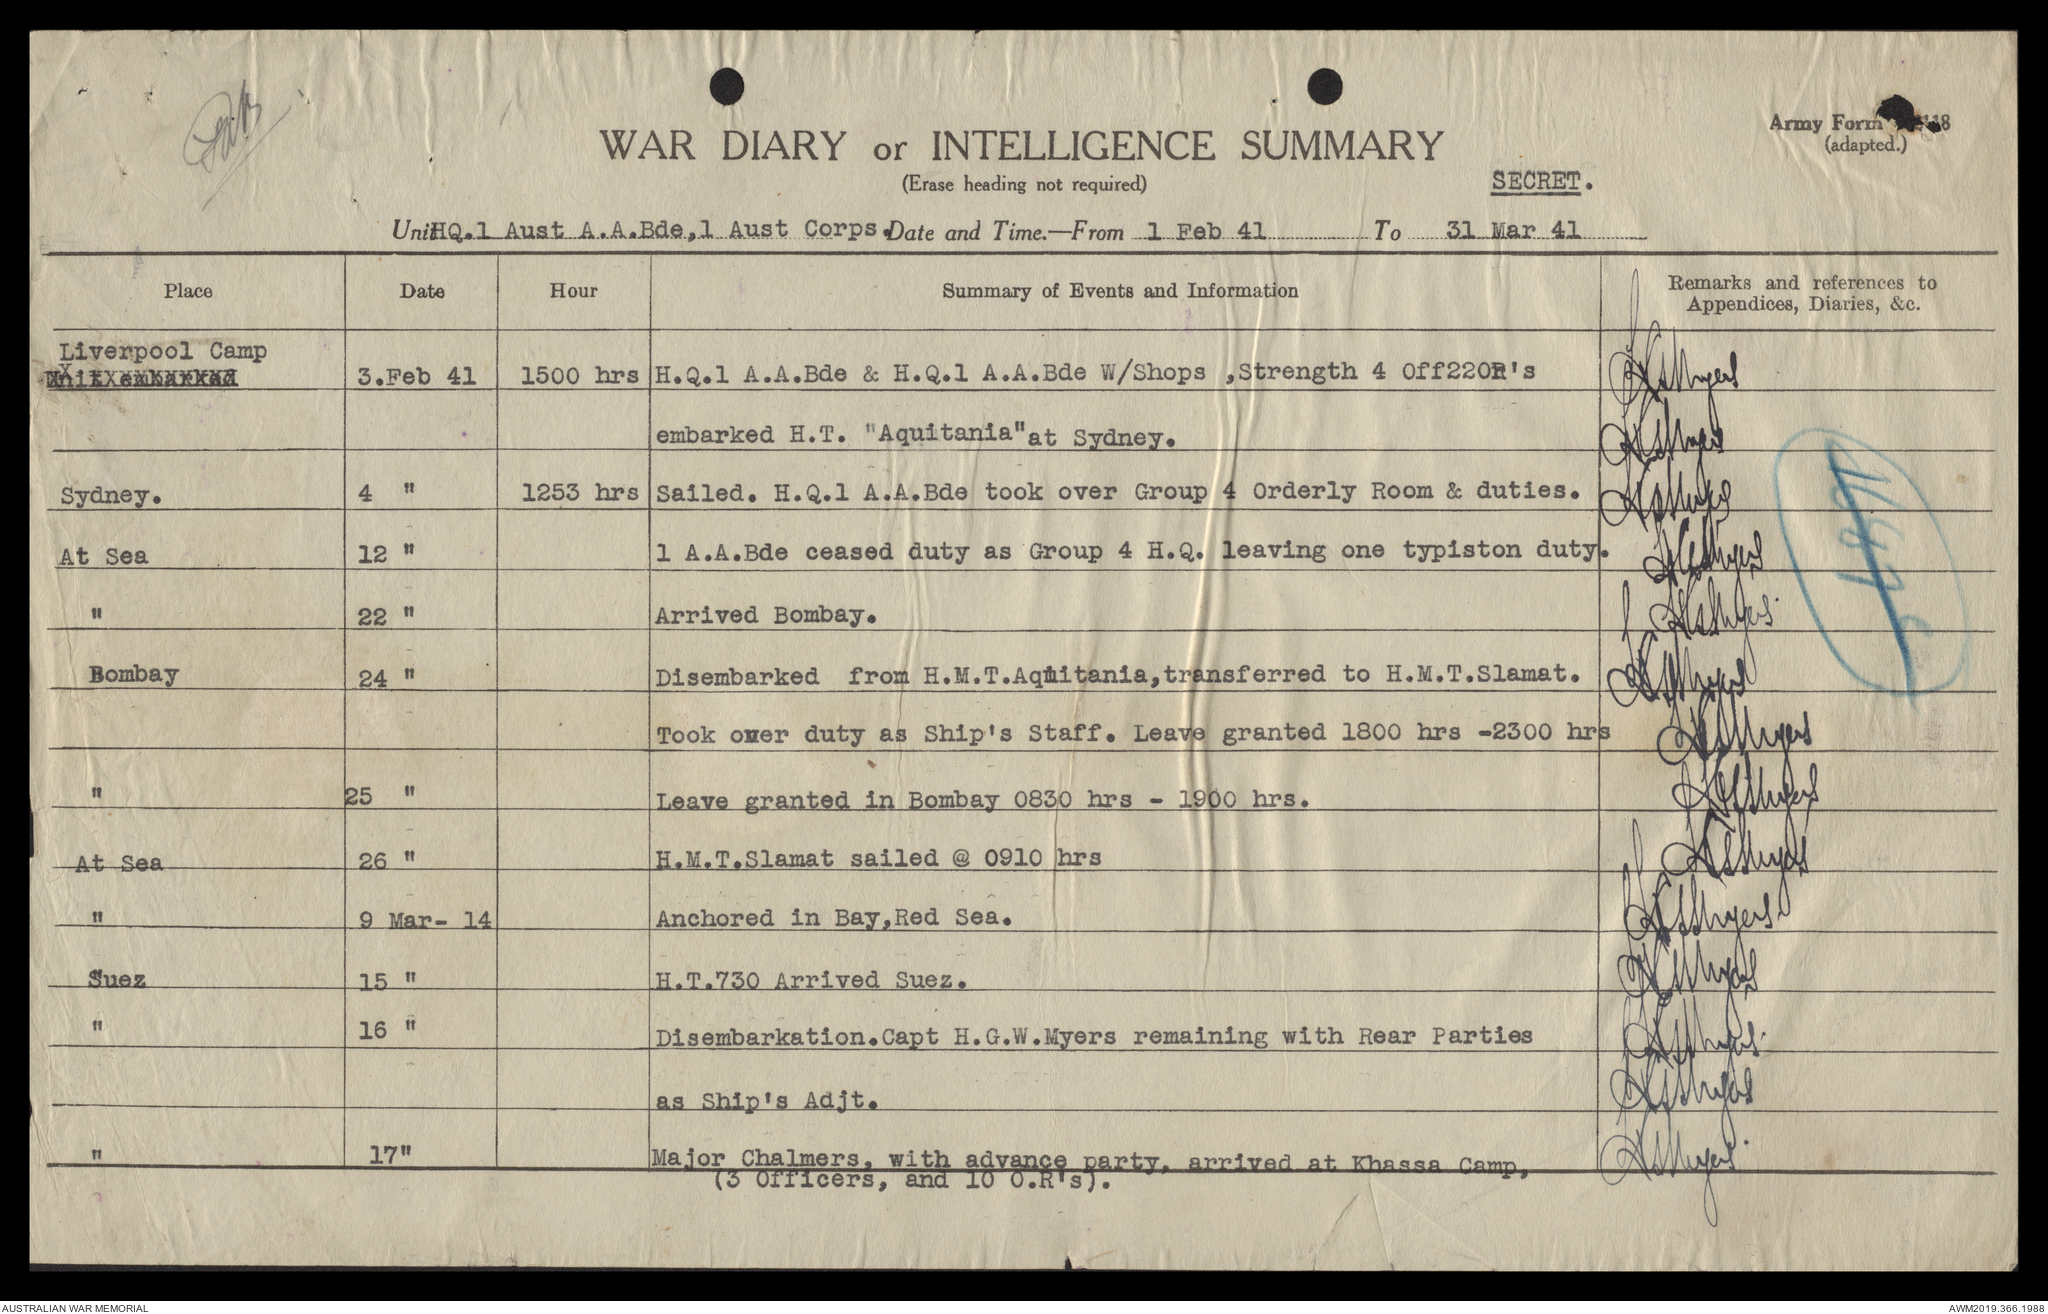 Feb
WAR DIARY or INTELLIGENCE SUMMARY
Army Form 118
(adapted.)
(Erase heading not required)
SECRET.
Unit HQ.1 Aust A.A.Bde,1 Aust Corps. Date and Time.—From 1 Feb 41 To 31 Mar 41
Place Date Hour Summary of Events and Information Remarks and references to
Appendices, Diaries, &c.
Liverpool Camp
Unit embarked 3.Feb 41 1500 hrs H.Q.1 A.A.Bde & H.Q.1 A.A.Bde W/Shops ,Strength 4 Off22OR's HGWMyers
embarked H.T. "Aquitania"at Sydney. HGWMyers
Sydney. 4 " 1253 hrs Sailed. H.Q.1 A.A.Bde took over Group 4 Orderly Room & duties. HGWMyers
At Sea 12 " 1 A.A.Bde ceased duty as Group 4 H.Q. leaving one typiston duty. HGWMyers
" 22 " Arrived Bombay. HGWMyers
Bombay 24 " Disembarked from H.M.T.Aquitania,transferred to H.M.T.Slamat. HGWMyers
Took over duty as Ship's Staff. Leave granted 1800 hrs -2300 hrs HGWMyers
" 25 " Leave granted in Bombay 0830 hrs - 1900 hrs. HGWMyers
At Sea 26 " H.M.T.Slamat sailed @ 0910 hrs HGWMyers
" 9 Mar- 14 Anchored in Bay,Red Sea. HGWMyers
Suez 15 " H.T.730 Arrived Suez. HGWMyers
" 16 " Disembarkation.Capt H.G.W.Myers remaining with Rear Parties HGWMyers
as Ship's Adjt. HGWMyers
" 17" Major Chalmers, with advance party, arrived at Khassa Camp, HGWMyers
(3 Officers, and 10 O.R's).
AUSTRALIAN WAR MEMORIAL AWM2019.366.1988